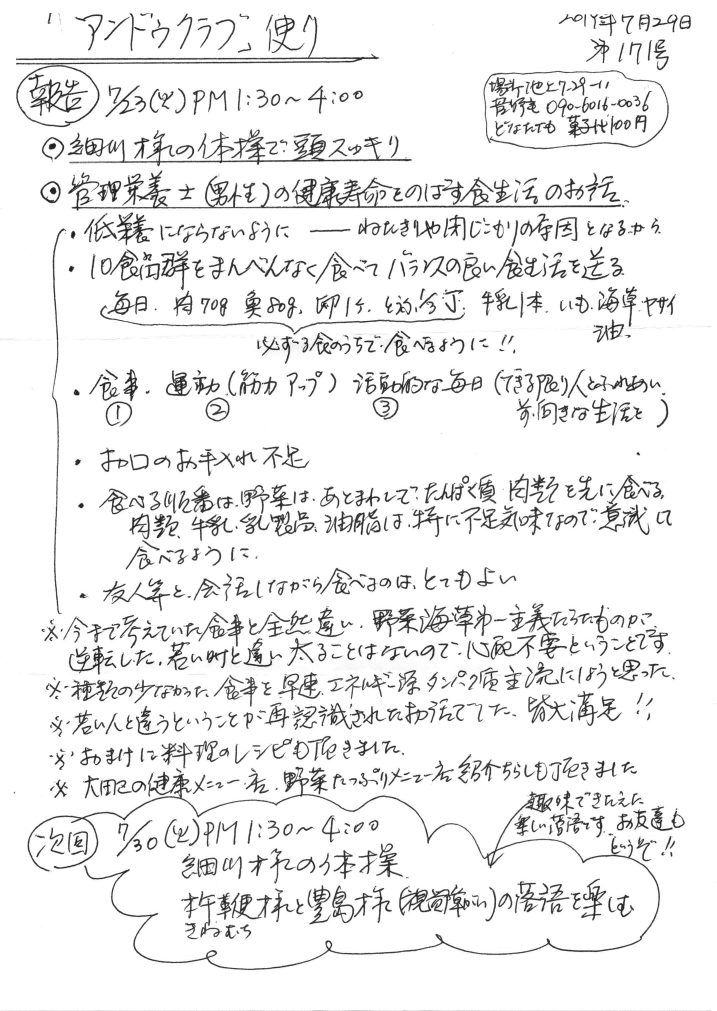 「アンドゥクラブ」便り
2019年7月29日
第171号
報告 7/23(火)PM1:30〜4:00
場所 池上7-29-11
菅野宅 090-6016-0036
どなたでも 菓子代100円
⦿細川様の体操で頭スッキリ
⦿管理栄養士(男性)の健康寿命をのばす食生活のお話
・低栄養にならないように ── ねたきりや閉じこもりの原因となるから
・10食品群をまんべんなく食べてバランスの良い食生活を送る
毎日、肉70g 魚80g、卵1ケ、とうふ1/3丁、牛乳1本、いも、海草、ヤサイ
油、
必ず3食のうちで食べるように!!
・食事、運動(筋力アップ) 活動的な毎日(できる限り人とふれあい
① ② ③ 前向きな生活を)
・お口のお手入れ不足
・食べる順番は、野菜は、あとまわしで、たんぱく質 肉類を先に食べる
肉類、牛乳、乳製品、油脂は、特に不足気味なので、意識して
食べるように、
・友人等と、会話しながら食べるのは、とてもよい
※今まで考えていた食事と全然違い、野菜海草第一主義だったものが、
逆転した、若い時と違い太ることはないので、心配不要ということです
※種類の少なかった、食事を早速、エネルギー源タンパク質主流にしようと思った、
※若い人と違うということが再認識されたお話でした、皆大満足!!
※おまけに料理のレシピも頂きました、
※大田区の健康メニュー店、野菜たっぷりメニュー店紹介ちらしも頂きました
次回 7/30(火)PM1:30〜4:00
趣味できたえた
楽しい落語です、お友達も
どうぞ!!
細川様の体操、
杵鞭様と豊島様(視覚障がい)の落語を楽しむ
きねむち